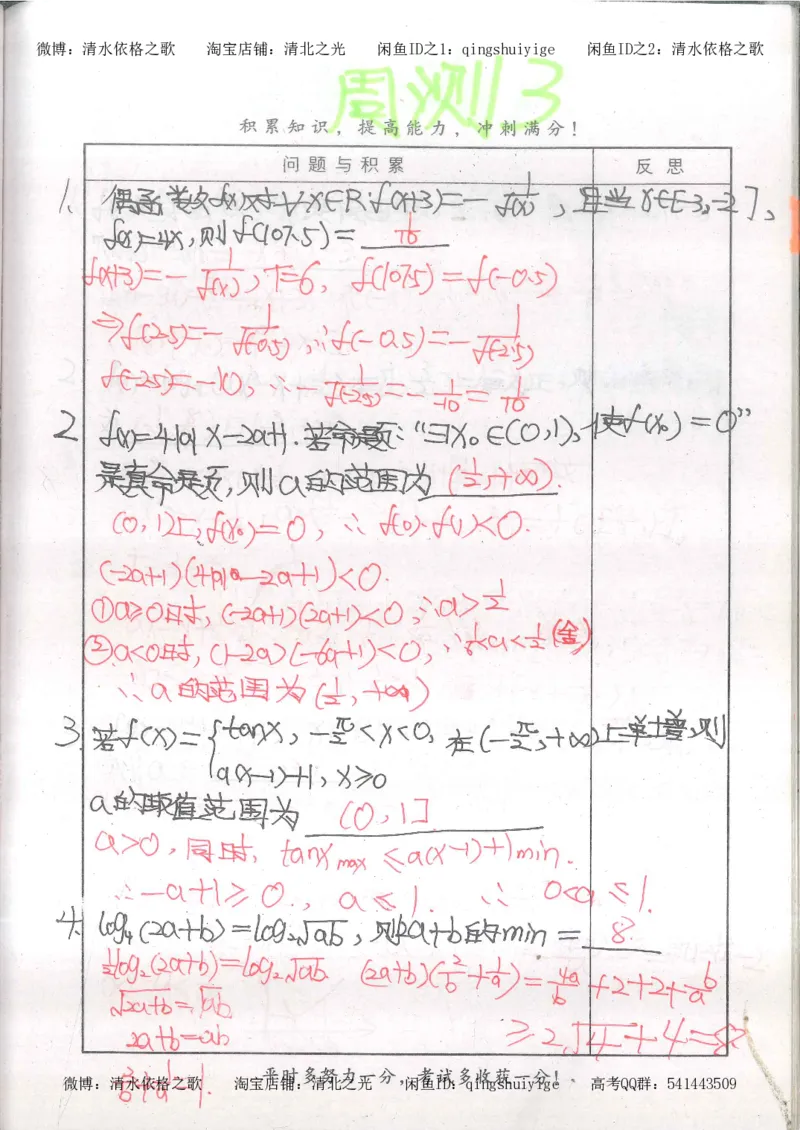 微博：清水依格之歌 淘宝店铺：清北之光 闲鱼ID之1：qingshuiyige 闲鱼ID之2：清水依格之歌
周测13
积累知识，提高能力，冲刺满分！
问题与积累 反思
1. 偶函数f(x)对∀x∈R f(x+3)=-1/f(x)，且当x∈[-3,-2]，
f(x)=4x，则f(107.5)= 1/10
f(x+3)=-1/f(x)，T=6，f(107.5)=f(-0.5)
⇒f(2.5)=-1/f(-0.5)，∴f(-0.5)=-1/f(2.5)
f(-2.5)=-10，∴-1/f(-2.5)=-1/-10=1/10
2. f(x)=4|a|x-2a+1．若命题："∃x₀∈(0,1)，使f(x₀)=0"
是真命题，则a的范围为 (1/2,+∞).
(0,1)上，f(x₀)=0，∴f(0)·f(1)<0.
(-2a+1)(4|a|-2a+1)<0.
①a≥0时，(-2a+1)(2a+1)<0，∴a>1/2
②a<0时，(1-2a)(-6a+1)<0，∴1/6<a<1/2(舍)
∴a的范围为(1/2,+∞)
3. 若f(x)={tanx，-π/2<x<0，在(-π/2,+∞)上单增，则
a(x-1)+1，x≥0
a的取值范围为 (0,1]
a>0，同时，tanx max ≤a(x-1)+1 min.
∴-a+1≥0，a≤1. ∴0<a≤1.
4. log₄(2a+b)=log₂√ab，则2a+b的min= 8
1/2log₂(2a+b)=log₂√ab (2a+b)(2/b+1/a)=4a/b+2+2+b/a
√2a+b=√ab
2a+b=ab ≥2√4+4=8
平时多努力一分，考试多收获一分！
微博：清水依格之歌 淘宝店铺：清北之光 闲鱼ID之1：qingshuiyige 高考QQ群：541443509
2/b+1/a=1.